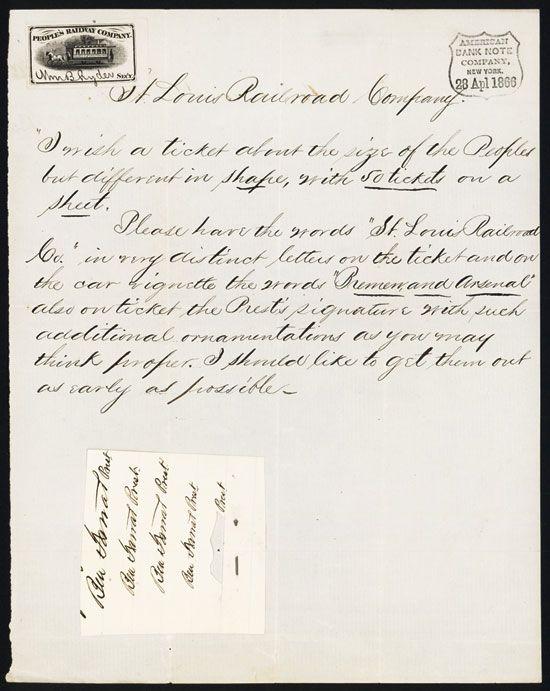 PEOPLE'S RAILWAY COMPANY.
Wm B. Ryder SEC'Y.
AMERICAN
BANK NOTE
COMPANY,
NEW YORK.
28 Apl 1866
"St. Louis Railroad Company.
"I wish a ticket about the size of the Peoples
but different in shape, with 50 tickets on a
sheet.
Please have the words "St. Louis Railroad
Co." in very distinct letters on the ticket and on
the car vignette the words "Bremen and Arsenal"
also on ticket the Prest's signature with such
additional ornamentations as you may
think proper. I should like to get them out
as early as possible_
Prest
Prest.
Prest
Prest
Prest